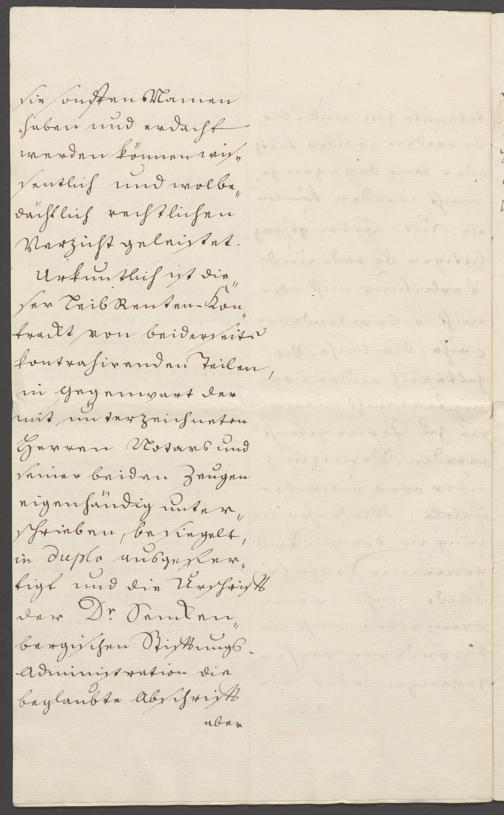 sie sonsten Namen
haben und erdacht
werden können wis„
sentlich und wolbe„
dächtlich rechtlichen
Verzicht geleistet.
Urkuntlich ist die„
ser Leib Renten-Kon„
trackt von beiderseits
kontrahirenden Teilen,
in Gegenwart der
mit unterzeichneten
Herren Notars und
seiner beiden Zeugen
eigenhändig unter„
schrieben, besiegelt,
in duplo ausgefer„
tigt und die Urschrift
der Dr. Senken„
bergischen Stiftungs-
Administration die
beglaubte Abschrift
aber